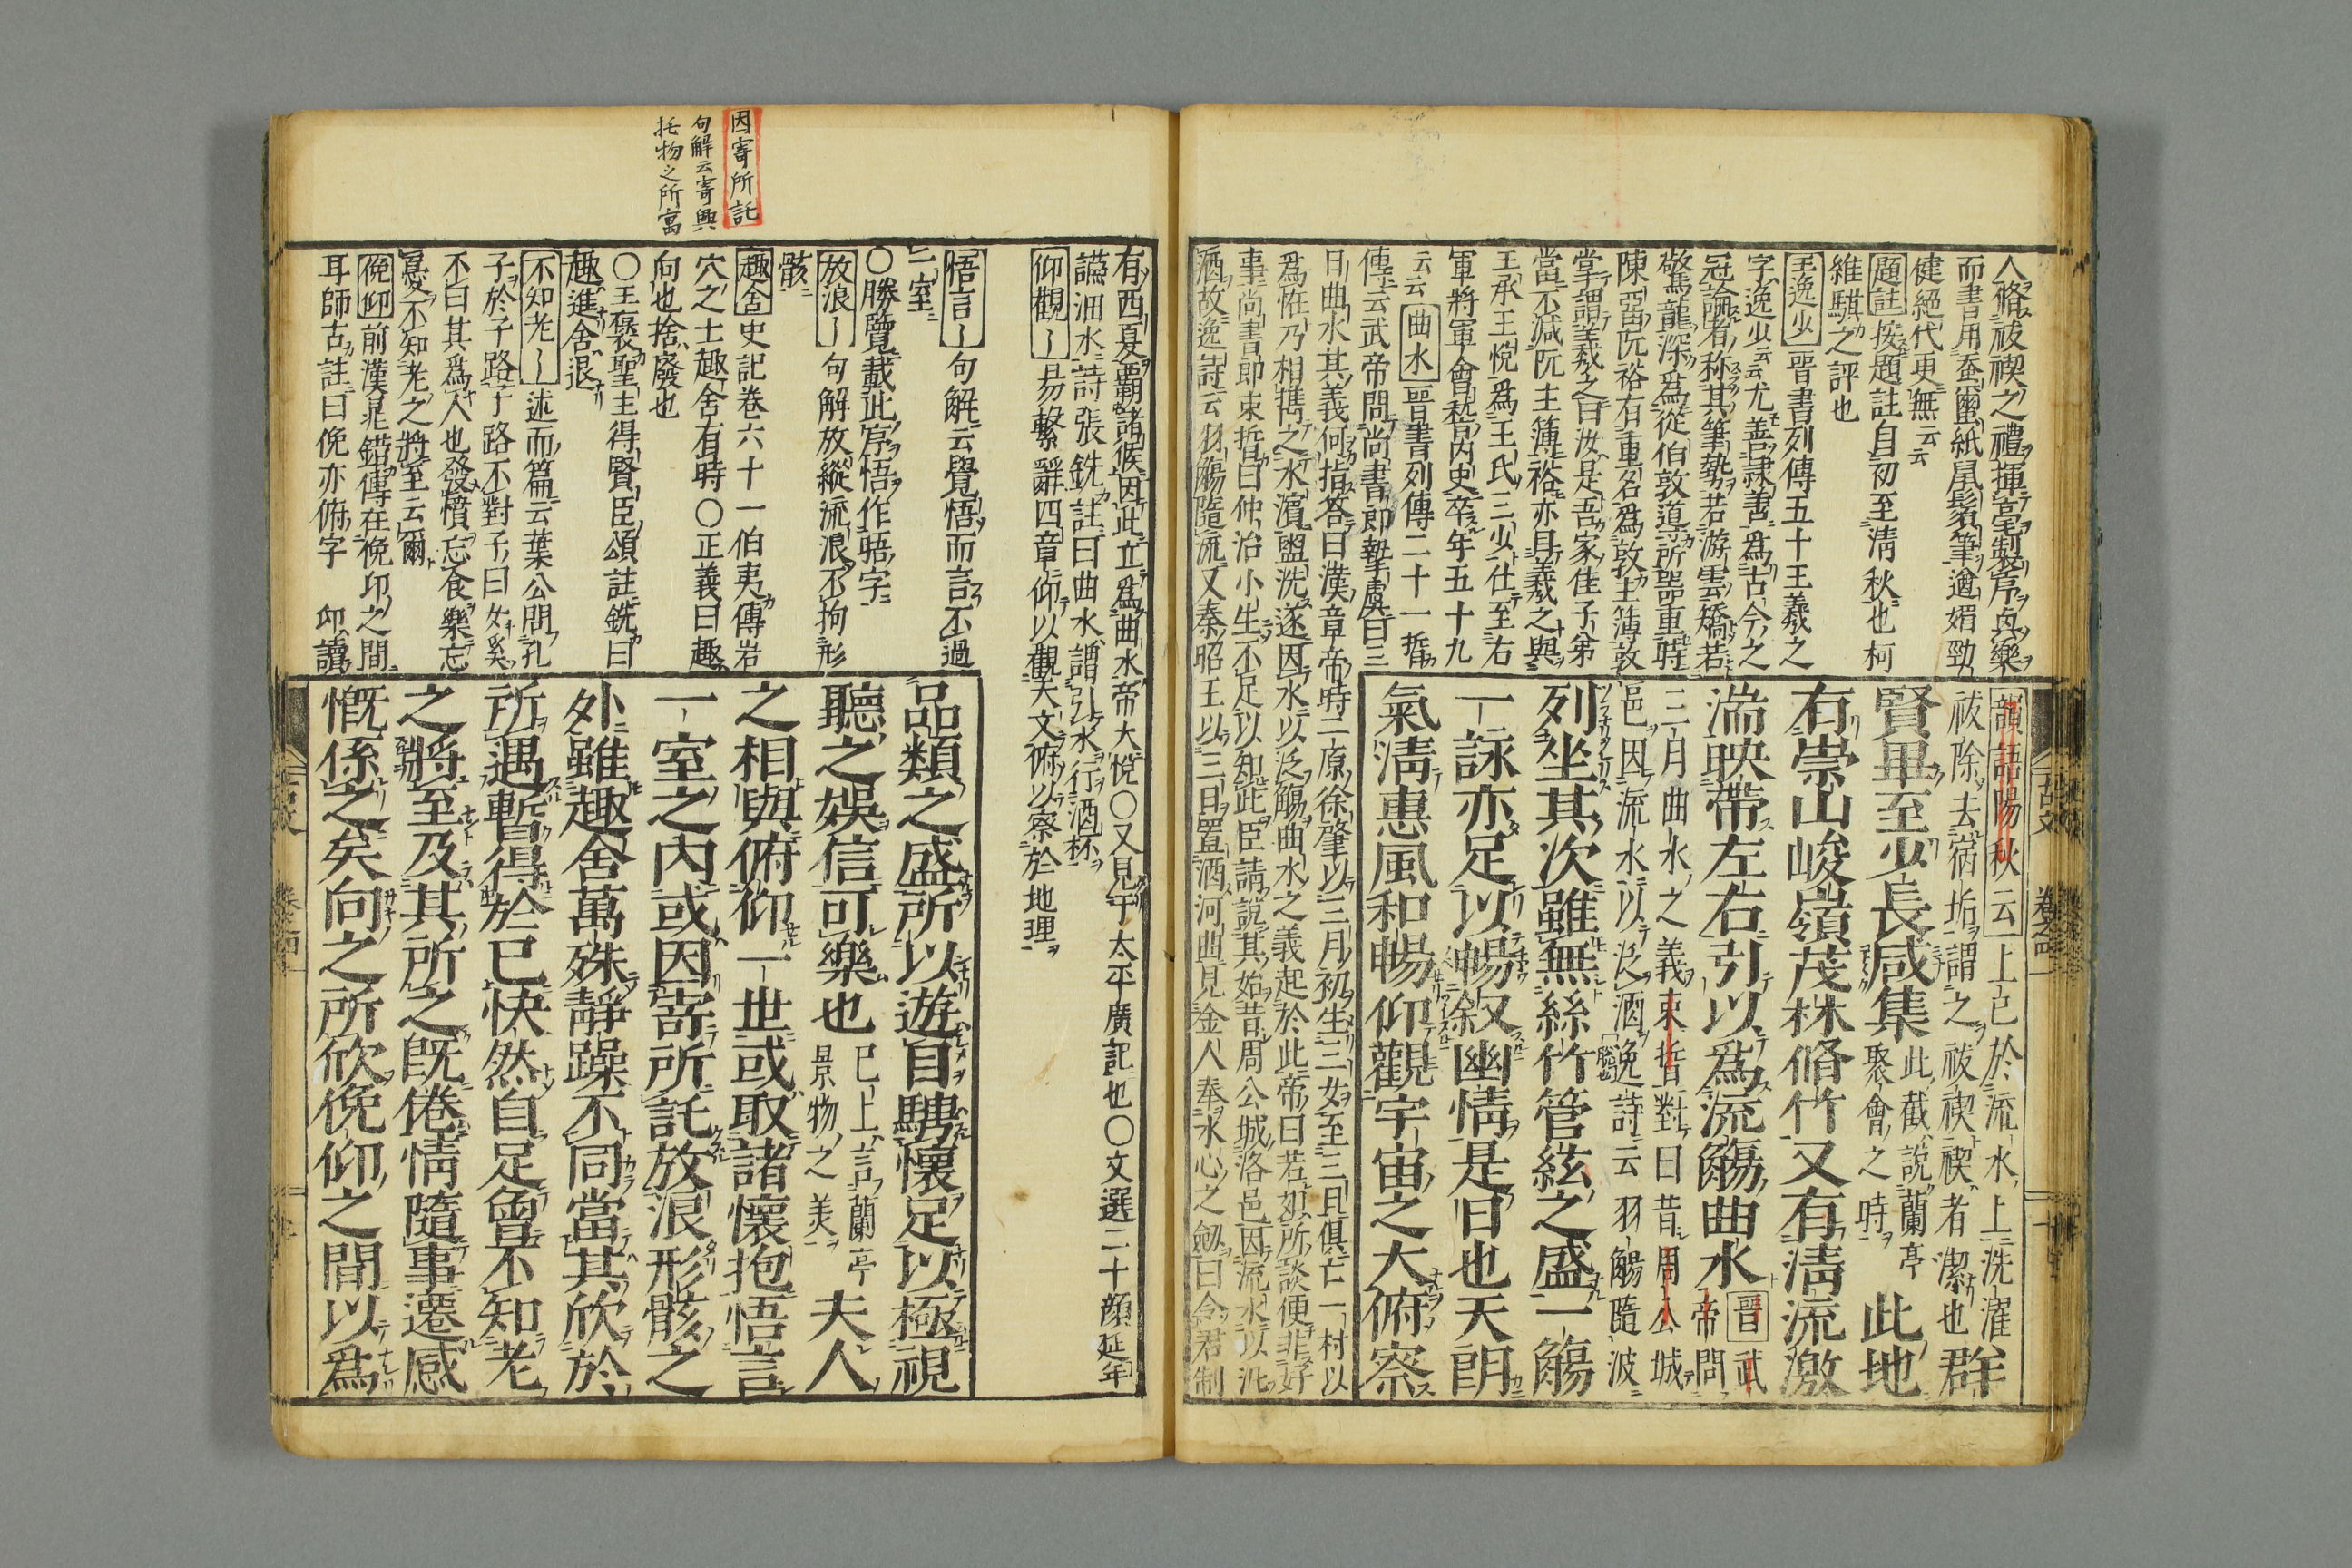 人脩祓禊之禮揮毫製序奐樂
而書用蚕蠒紙鼠鬚筆遒媚勁
健絕代更無云云
題註按題註自初至淸秋也柯
維騏之評也
王逸少晋書列傳五十王羲之
字逸少云云尤善隷書爲古今之
冠論者称其筆勢若游雲矯若
驚龍深爲從伯敦道所噐重時
陳畄阮裕有重名爲敦主簿敦
掌謂羲之曰汝是吾家佳子弟
當不減阮主簿裕亦目羲之與
王承王悅爲王氏三少仕至右
軍將軍會稽内史卒年五十九
云云曲水晋書列傳二十一晳
傳云武帝問尚書郎摯虞曰三
日曲水其義何指答曰漢章帝時二原徐肇以三月初生三女至三日俱亡一村以
爲恠乃相携之水濱盥洗遂因水以泛觴曲水之義起於此帝曰若如所談便非好
事尚書郎束晳曰仲治小生不足以知此臣請說其始昔周公城洛邑因流水以汎
酒故逸詩云羽觴隨流又秦昭王以三日置酒河曲見金人奉水心之劔曰令君制
韻語陽秋云上巳於流水上洗濯
祓除去宿垢謂之祓禊禊者潔也群
賢畢至少長咸集此截說蘭亭
聚會之時此地
有崇山峻嶺茂林脩竹又有淸流激
湍映帶左右引以爲流觴曲水晋武
帝問
三月曲水之義束晳對曰昔周公城
邑因流水以泛酒逸詩云羽觴隨波
列坐其次雖無絲竹管絃之盛一觴
一詠亦足以暢叙幽情是日也天朗
氣淸惠風和暢仰觀宇宙之大俯察
古文 卷之四
有西夏覇諸侯因此立爲曲水帝大悅〇又見于太平廣記也〇文選二十顏延年
讌洄水詩張銑註曰曲水謂引水行酒杯
仰觀〡易繫辭四章仰以觀天文俯以察於地理
悟言〡句解云覺悟而言不過
一室
〇勝覽載此序悟作晤字
放浪〡句解放縱流浪不拘形
骸
趣舍史記卷六十一伯夷傳岩
穴之士趣舍有時〇正義曰趣
向也捨廢也
〇王褒聖主得賢臣頌註銑曰
趣進舍退
不知老〡述而篇云葉公問孔
子於子路子路不對子曰女奚
不曰其爲人也發憤忘食樂忘
憂不知老之將至云爾
俛仰前漢晁錯傳在俛卬之間
耳師古註曰俛亦俯字 卬讀
因寄所託
句解云寄興
托物之所寓
品類之盛所以遊目騁懷足以極視
聽之娛信可樂也已上言蘭亭
景物之美夫人
之相與俯仰一世或取諸懷抱悟言
一室之內或因寄所託放浪形骸之
外雖趣舍萬殊靜躁不同當其欣於
所遇暫得於已快然自足曾不知老
之將至及其所之旣倦情隨事遷感
慨係之矣向之所欣俛仰之間以爲